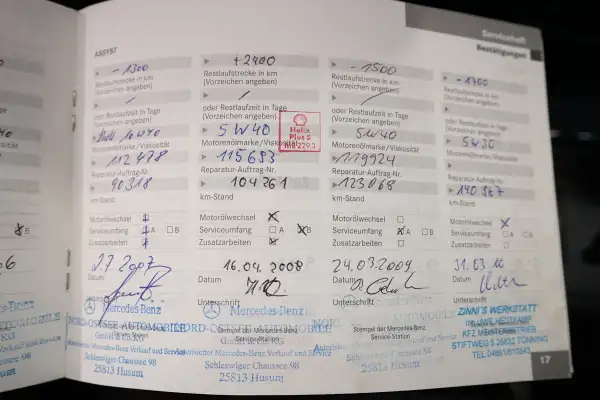 Serviceheft
Bestätigungen
ASSYST
- 1300
Restlaufstrecke in km
(Vorzeichen angeben)
oder Restlaufzeit in Tage
(Vorzeichen angeben)
10W40
Motorenölmarke/Viskosität
112478
Reparatur-Auftrag-Nr.
90318
km-Stand
Motorölwechsel
Serviceumfang A B
Zusatzarbeiten
2.7.2007
Datum
Mercedes-Benz
NORD-OSTSEE AUTOMOBILE
GmbH & Co. KG
Autorisierter Mercedes-Benz Verkauf und Service
Schleswiger Chaussee 98
25813 Husum
+2400
Restlaufstrecke in km
(Vorzeichen angeben)
oder Restlaufzeit in Tage
(Vorzeichen angeben)
5W40
Helix
Plus S
MB 229.3
Motorenölmarke/Viskosität
115683
Reparatur-Auftrag-Nr.
104261
km-Stand
Motorölwechsel
Serviceumfang A B
Zusatzarbeiten
16.04.2008
Datum
Unterschrift
Mercedes-Benz
Stempel der Mercedes-Benz
Service-Station
Schleswiger Chaussee 98
25813 Husum
- 1500
Restlaufstrecke in km
(Vorzeichen angeben)
oder Restlaufzeit in Tage
(Vorzeichen angeben)
5W40
Motorenölmarke/Viskosität
119924
Reparatur-Auftrag-Nr.
123068
km-Stand
Motorölwechsel
Serviceumfang A B
Zusatzarbeiten
24.03.2009
Datum
Unterschrift
Stempel der Mercedes-Benz
Service-Station
Schleswiger Chaussee 98
25813 Husum
- 1700
Restlaufstrecke in km
(Vorzeichen angeben)
oder Restlaufzeit in Tage
(Vorzeichen angeben)
5W30
Motorenölmarke/Viskosität
Reparatur-Auftrag-Nr.
140367
km-Stand
Motorölwechsel
Serviceumfang A B
Zusatzarbeiten
31.03.10
Datum
Unterschrift
ZINNI'S WERKSTATT
KFZ MEISTERBETRIEB
STIFTWEG 5 25832 TÖNNING
17